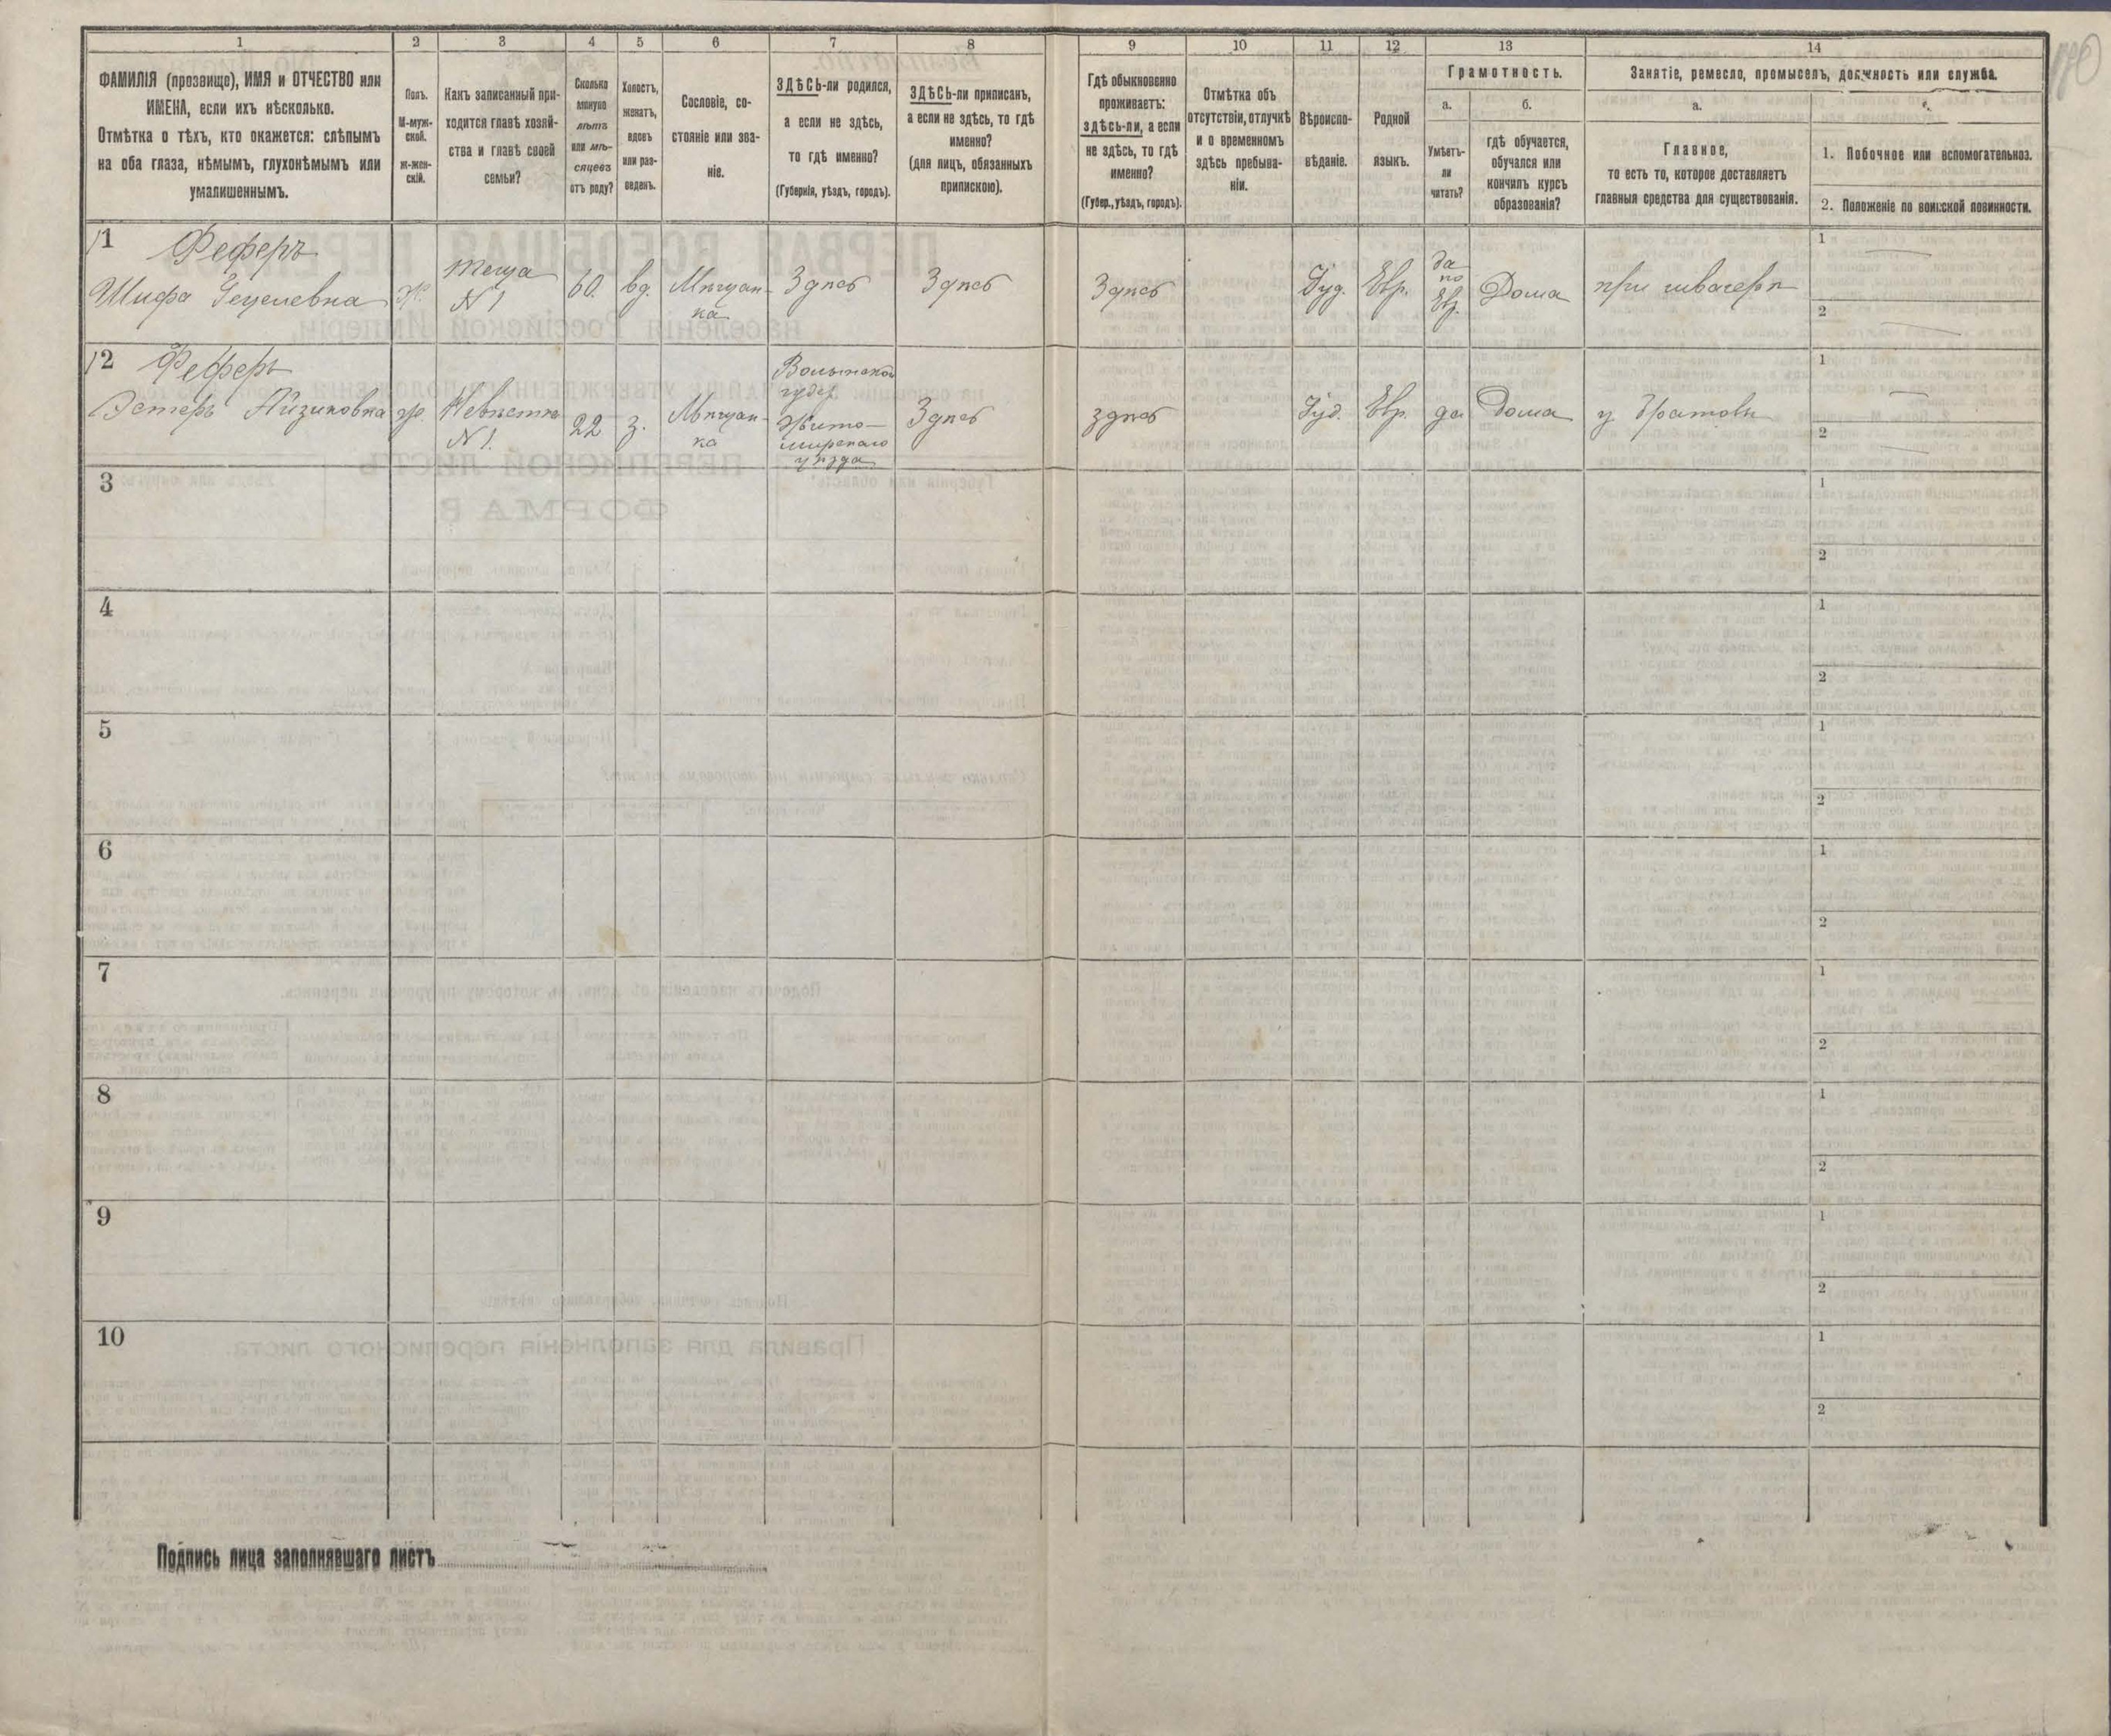 1
2
3
4
5
6
7
8
9
10
11
12
13
14
ФАМИЛІЯ (прозвище), ИМЯ и ОТЧЕСТВО или
ИМЕНА, если ихъ нѣсколько.
Отмѣтка о тѣхъ, кто окажется: слѣпымъ
на оба глаза, нѣмымъ, глухонѣмымъ или
умалишеннымъ.
Полъ.
М-муж-
ской.
ж-жен-
скій.
Какъ записанный при-
ходится главѣ хозяй-
ства и главѣ своей
семьи?
Сколько
минуло
лѣтъ
или мѣ-
сяцевъ
отъ роду?
Холостъ,
женатъ,
вдовъ
или раз-
веденъ.
Сословіе, со-
стояніе или зва-
ніе.
ЗДѢСЬ-ли родился,
а если не здѣсь,
то гдѣ именно?
(Губернія, уѣздъ, городъ).
ЗДѢСЬ-ли приписанъ,
а если не здѣсь, то гдѣ
именно?
(для лицъ, обязанныхъ
припискою).
Гдѣ обыкновенно
проживаетъ:
здѣсь-ли, а если
не здѣсь, то гдѣ
именно?
(Губер., уѣздъ, городъ).
Отмѣтка объ
отсутствіи, отлучкѣ
и о временномъ
здѣсь пребыва-
ніи.
Вѣроиспо-
вѣданіе.
Родной
языкъ.
Грамотность.
а.
Умѣетъ-
ли
читать?
б.
гдѣ обучается,
обучался или
кончилъ курсъ
образованія?
Занятіе, ремесло, промыселъ, должность или служба.
а.
Главное,
то есть то, которое доставляетъ
главныя средства для существованія.
1. Побочное или вспомогательное.
2. Положеніе по воинской повинности.
1
Феферъ
Шифа Гецелевна
ж.
теща
N 1
60.
вд.
Мѣщан-
ка
Здѣсь
Здѣсь
Здѣсь
Іуд.
Евр.
да
по
Евр.
Дома
при
1
2
2
Феферъ
Эстеръ Айзиковна
ж.
Невѣстка
N 1.
22
з.
Мѣщан-
ка
Волынской
губер.
Жито-
мирскаго
уѣзда
Здѣсь
здѣсь
Іуд.
Евр.
да
Дома
у
1
2
3
1
2
4
1
2
5
1
2
6
1
2
7
1
2
8
1
2
9
1
2
10
1
2
Подпись лица заполнявшаго листъ